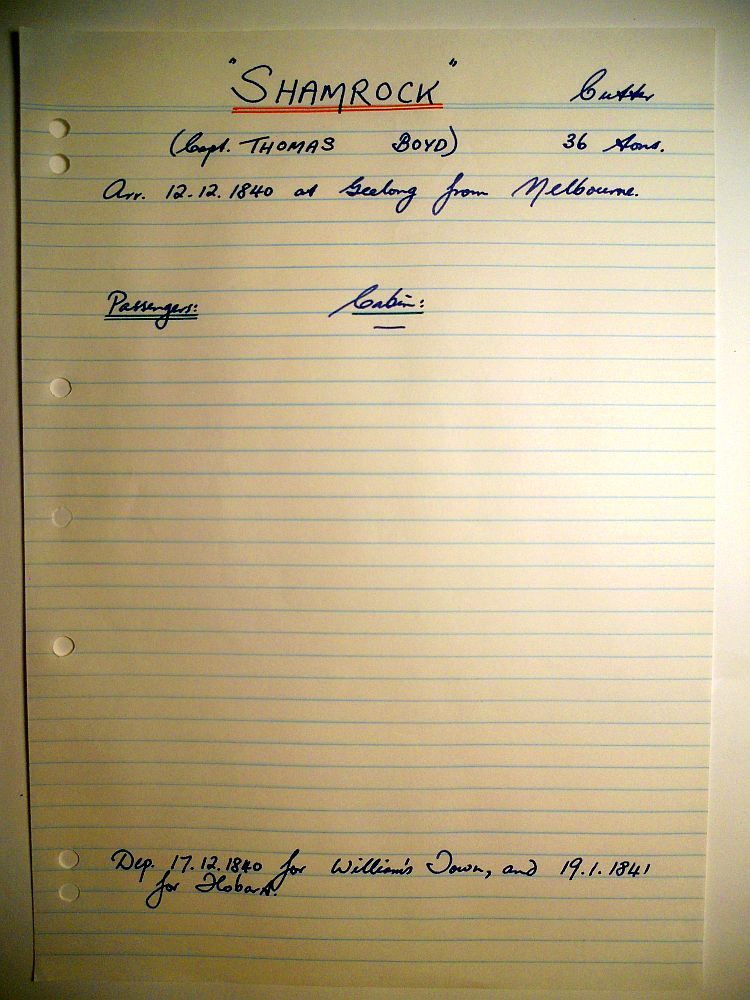 "SHAMROCK" Cutter
(Capt. THOMAS BOYD) 36 tons.
Arr. 12.12.1840 at Geelong from Melbourne.
Passengers: Cabin:
—
Dep. 17.12.1840 for William's Town, and 19.1.1841
for Hobart.